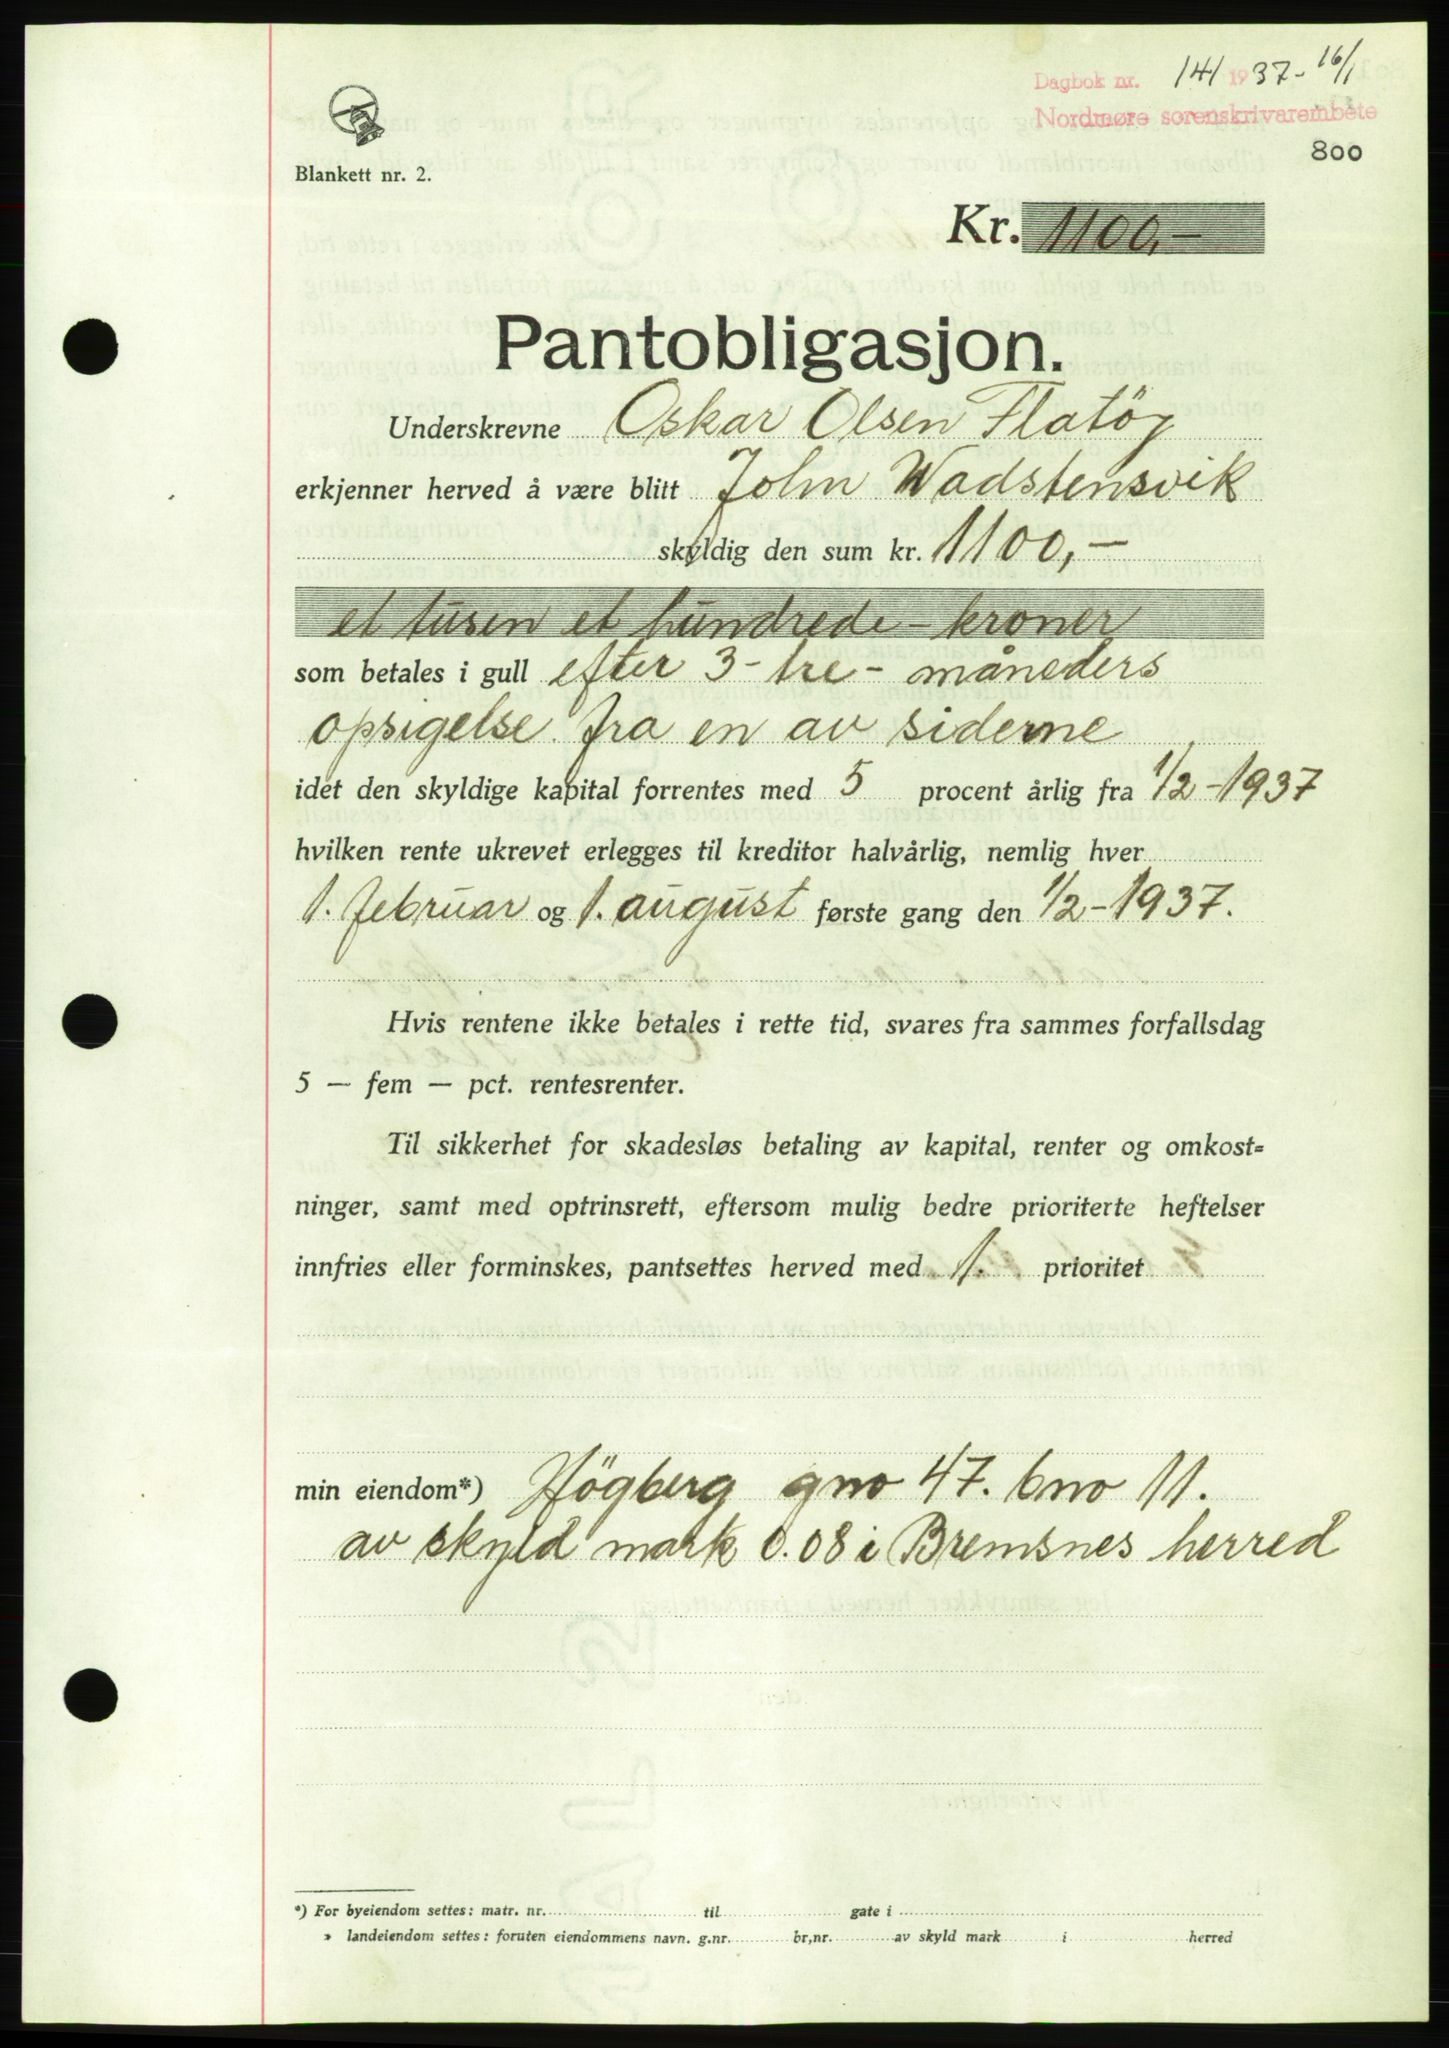 Dagbok nr. 141 1937 - 16/1
Nordmøre sorenskrivarembete
800
Blankett nr. 2.
Kr. 1100,-
Pantobligasjon.
Underskrevne Oskar Olsen Flatöy
erkjenner herved å være blitt John Wadstensvik
skyldig den sum kr. 1100,-
et tusen et hundrede - kroner
som betales i gull efter 3 - tre - måneders
opsigelse fra en av siderne
idet den skyldige kapital forrentes med 5 procent årlig fra 1/2 - 1937
hvilken rente ukrevet erlegges til kreditor halvårlig, nemlig hver
1. februar og 1. august første gang den 1/2 - 1937.
Hvis rentene ikke betales i rette tid, svares fra sammes forfallsdag
5 — fem — pct. rentesrenter.
Til sikkerhet for skadesløs betaling av kapital, renter og omkost=
ninger, samt med optrinsrett, eftersom mulig bedre prioriterte heftelser
innfries eller forminskes, pantsettes herved med 1. prioritet
min eiendom*) Högberg gno 47. bno 11.
av skyld mark 0.08 i Bremsnes herred
*) For byeiendom settes: matr. nr. til gate i
» landeiendom settes: foruten eiendommens navn. g.nr. br,nr. av skyld mark i herred